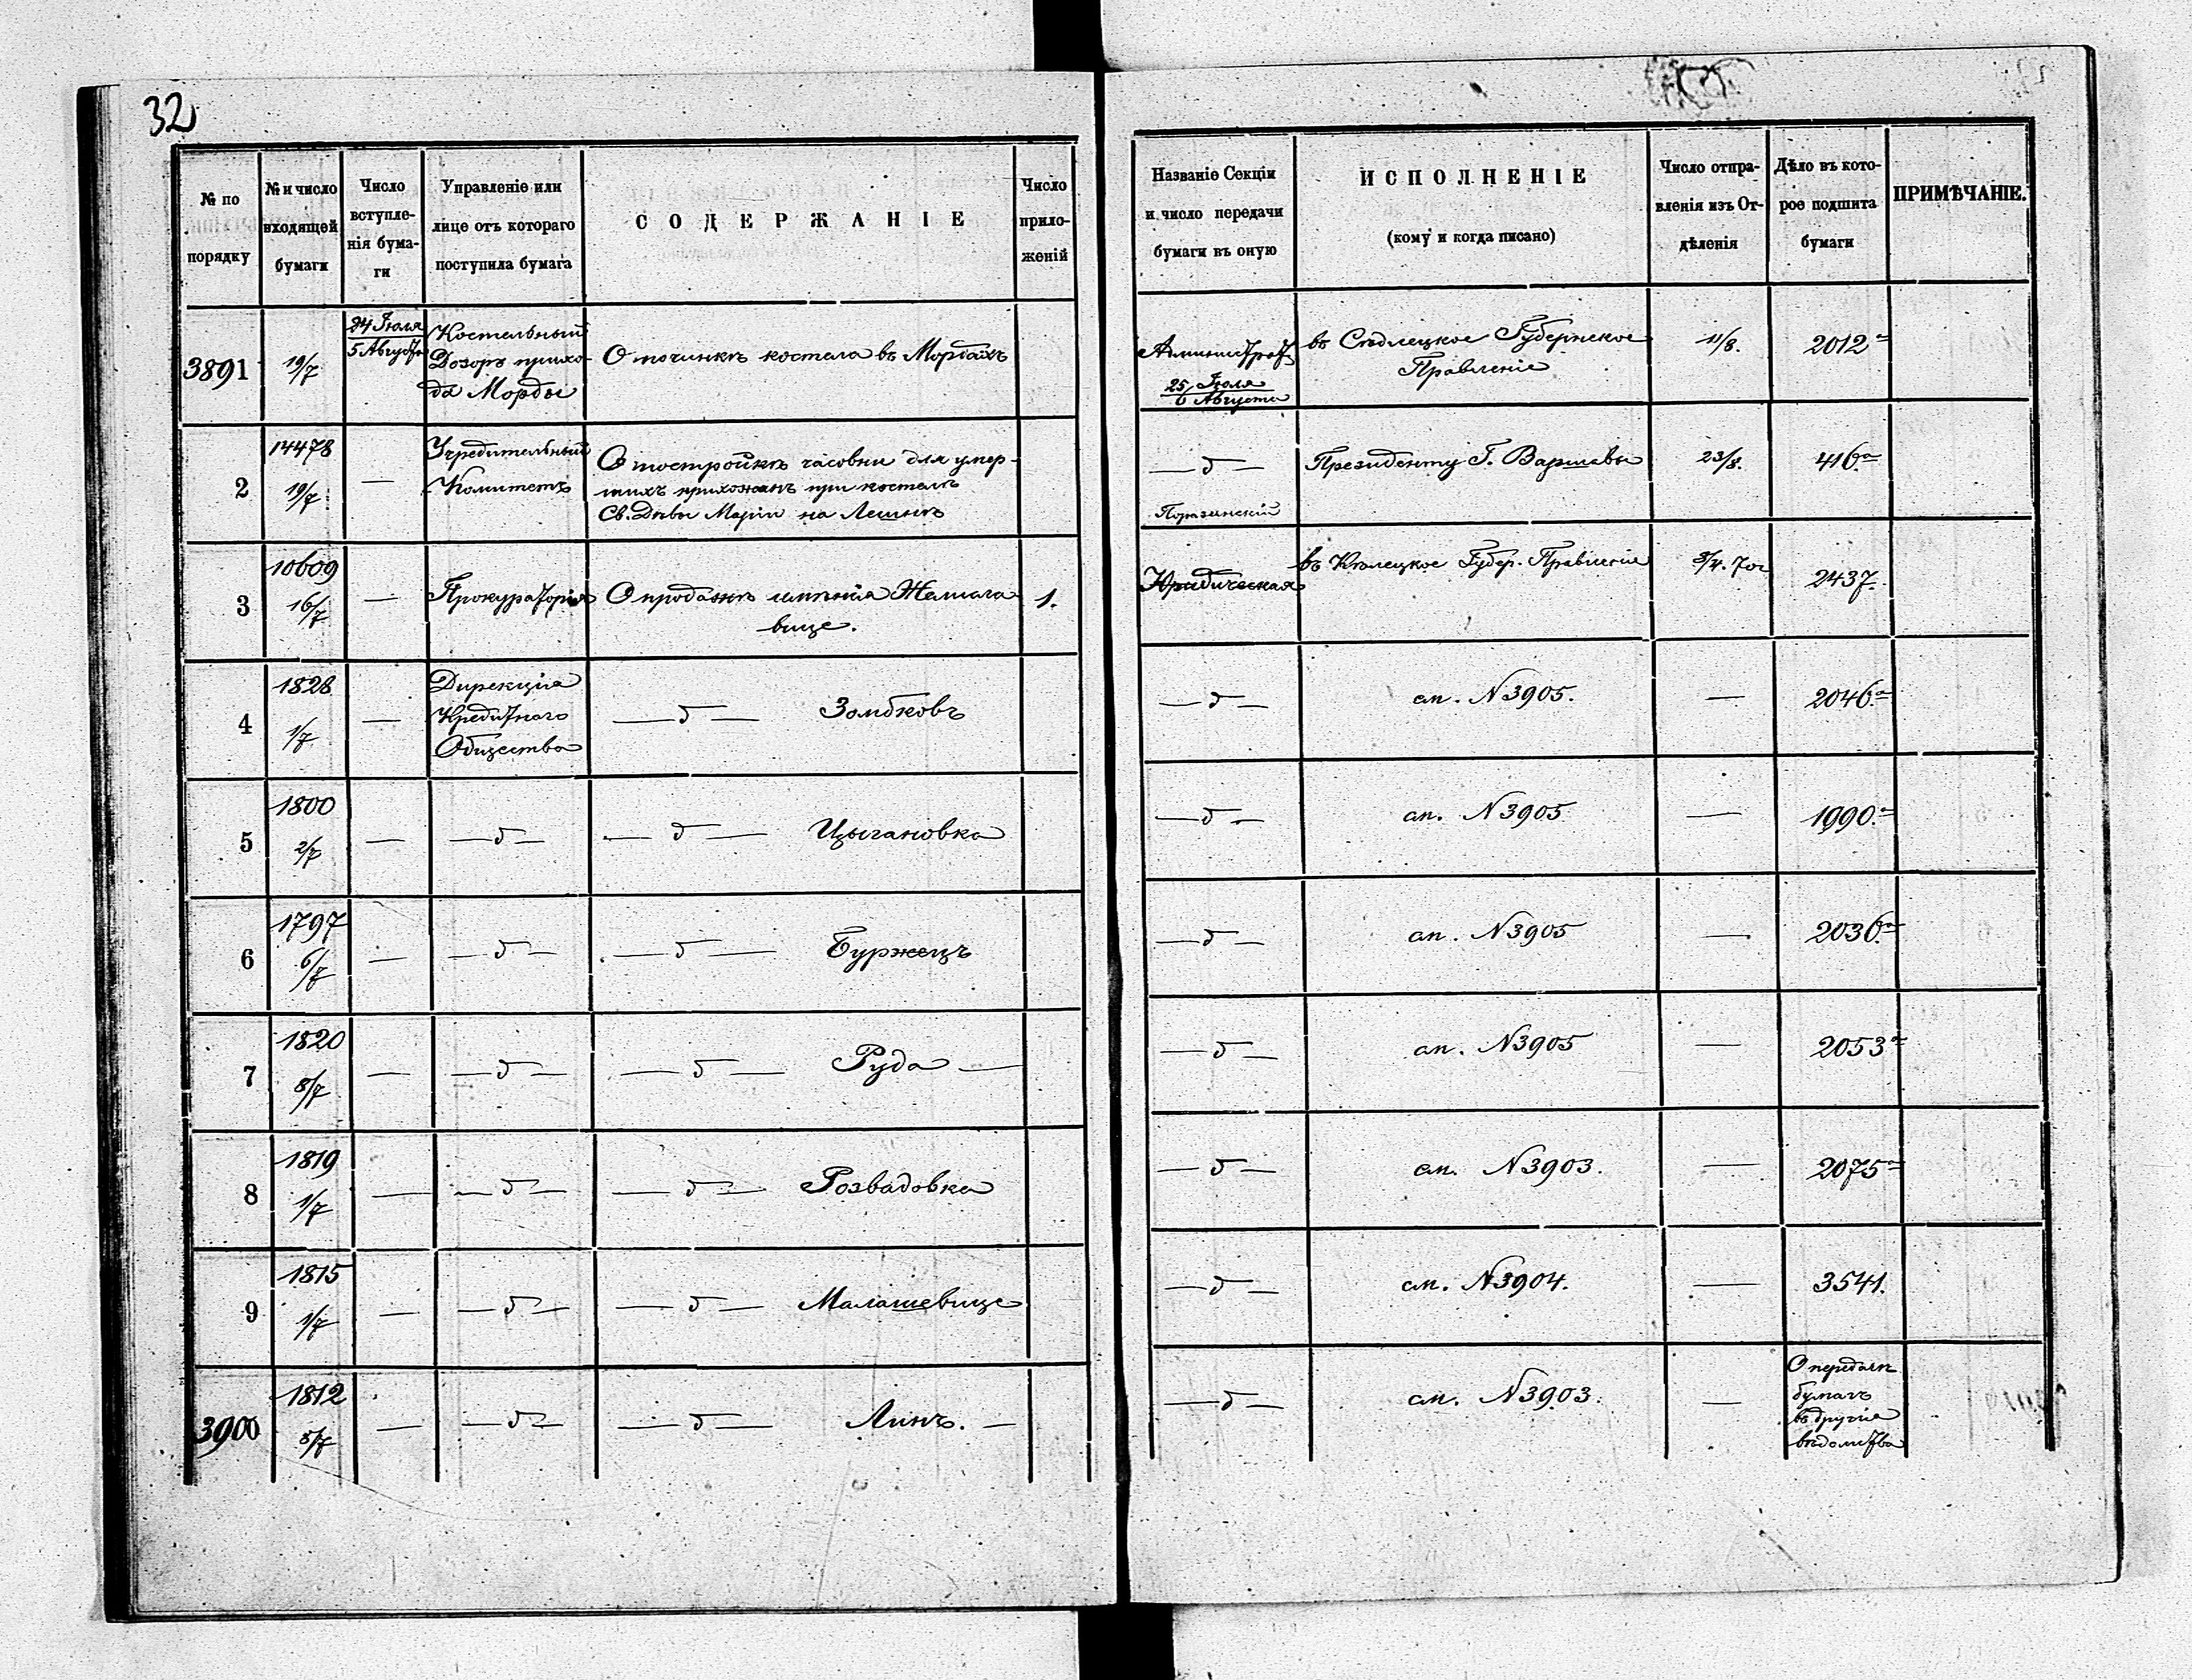 32
№ по
порядку
№ и число
входящей
бумаги
Число
вступле-
нія бума-
ги
Управленіе или
лице отъ котораго
поступила бумага
СОДЕРЖАНІЕ
Число
прило-
женій
Названіе Секціи
и число передачи
бумаги въ оную
ИСПОЛНЕНІЕ
(кому и когда писано)
Число отпра-
вленія изъ От-
дѣленія
Дѣло въ кото-
рое подшита
бумаги
ПРИМѢЧАНІЕ.
3891
19/7
24 Іюля
5 Августа
Костельный
Дозоръ прихо-
да Морды
О починкѣ костела въ Мордахъ
25 Іюля
6 Августа
въ Сѣдлецкое Губернское
Правленіе
11/8.
2012а
2
14478
19/7.
—
Учредительный
Комитетъ
О постройкѣ часовни для умер-
шихъ прихожанъ при костелѣ
Св. Дѣвы Маріи на Лешнѣ
— д —
Президенту Г. Варшавы
23/8.
416а
3
10609
16/7
—
Прокураторія
О продажѣ имѣнія
вице.
1.
Юридическая
въ Кѣлецкое Губер. Правленіе
2437.
4
1828
1/7.
—
Дирекція
Кредитнаго
Общества
— д — Зомбковъ
— д —
см. N 3905.
—
2046.а
5
1800
2/7
—
— д —
— д — Цыгановка
— д —
см. N 3905
—
1990.а
6
1797
6/7
—
— д —
— д — Буржецъ
— д —
см. N 3905
—
2036.а
7
1820
8/7
—
— д —
— д — Руда —
— д —
см. N 3905
—
2053а
8
1819
1/7
—
— д —
— д — Розвадовка
— д —
см. N 3903.
—
2075а
9
1815
1/7
—
— д —
— д — Малашевице
— д —
см. N 3904.
—
3541.
3900
1812
8/7
—
— д —
— д — Линъ. —
— д —
см. N 3903.
—
О передачѣ
бумагъ
въ другія
вѣдомства